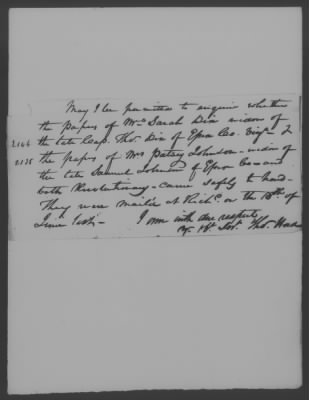 May I be permitted to enquire whether
the papers of Mrs Sarah Dix widow of
2144 the late Capt. Tho. Dix of Essex Co. Virga &
2135 the papers of Mrs Patsey Johnson - widow of
the late Samuel Johnson of Essex Co. and
both Revolutionary - came safely to hand -
They were mailed at Richd. on the 18th of
June last - I am with due respect
Yr. Obt. Svt. Tho.